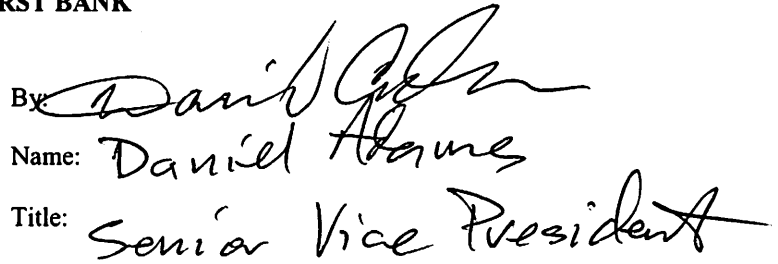 RST BANK
By: Daniel
Name: Daniel Adames
Title: Senior Vice President